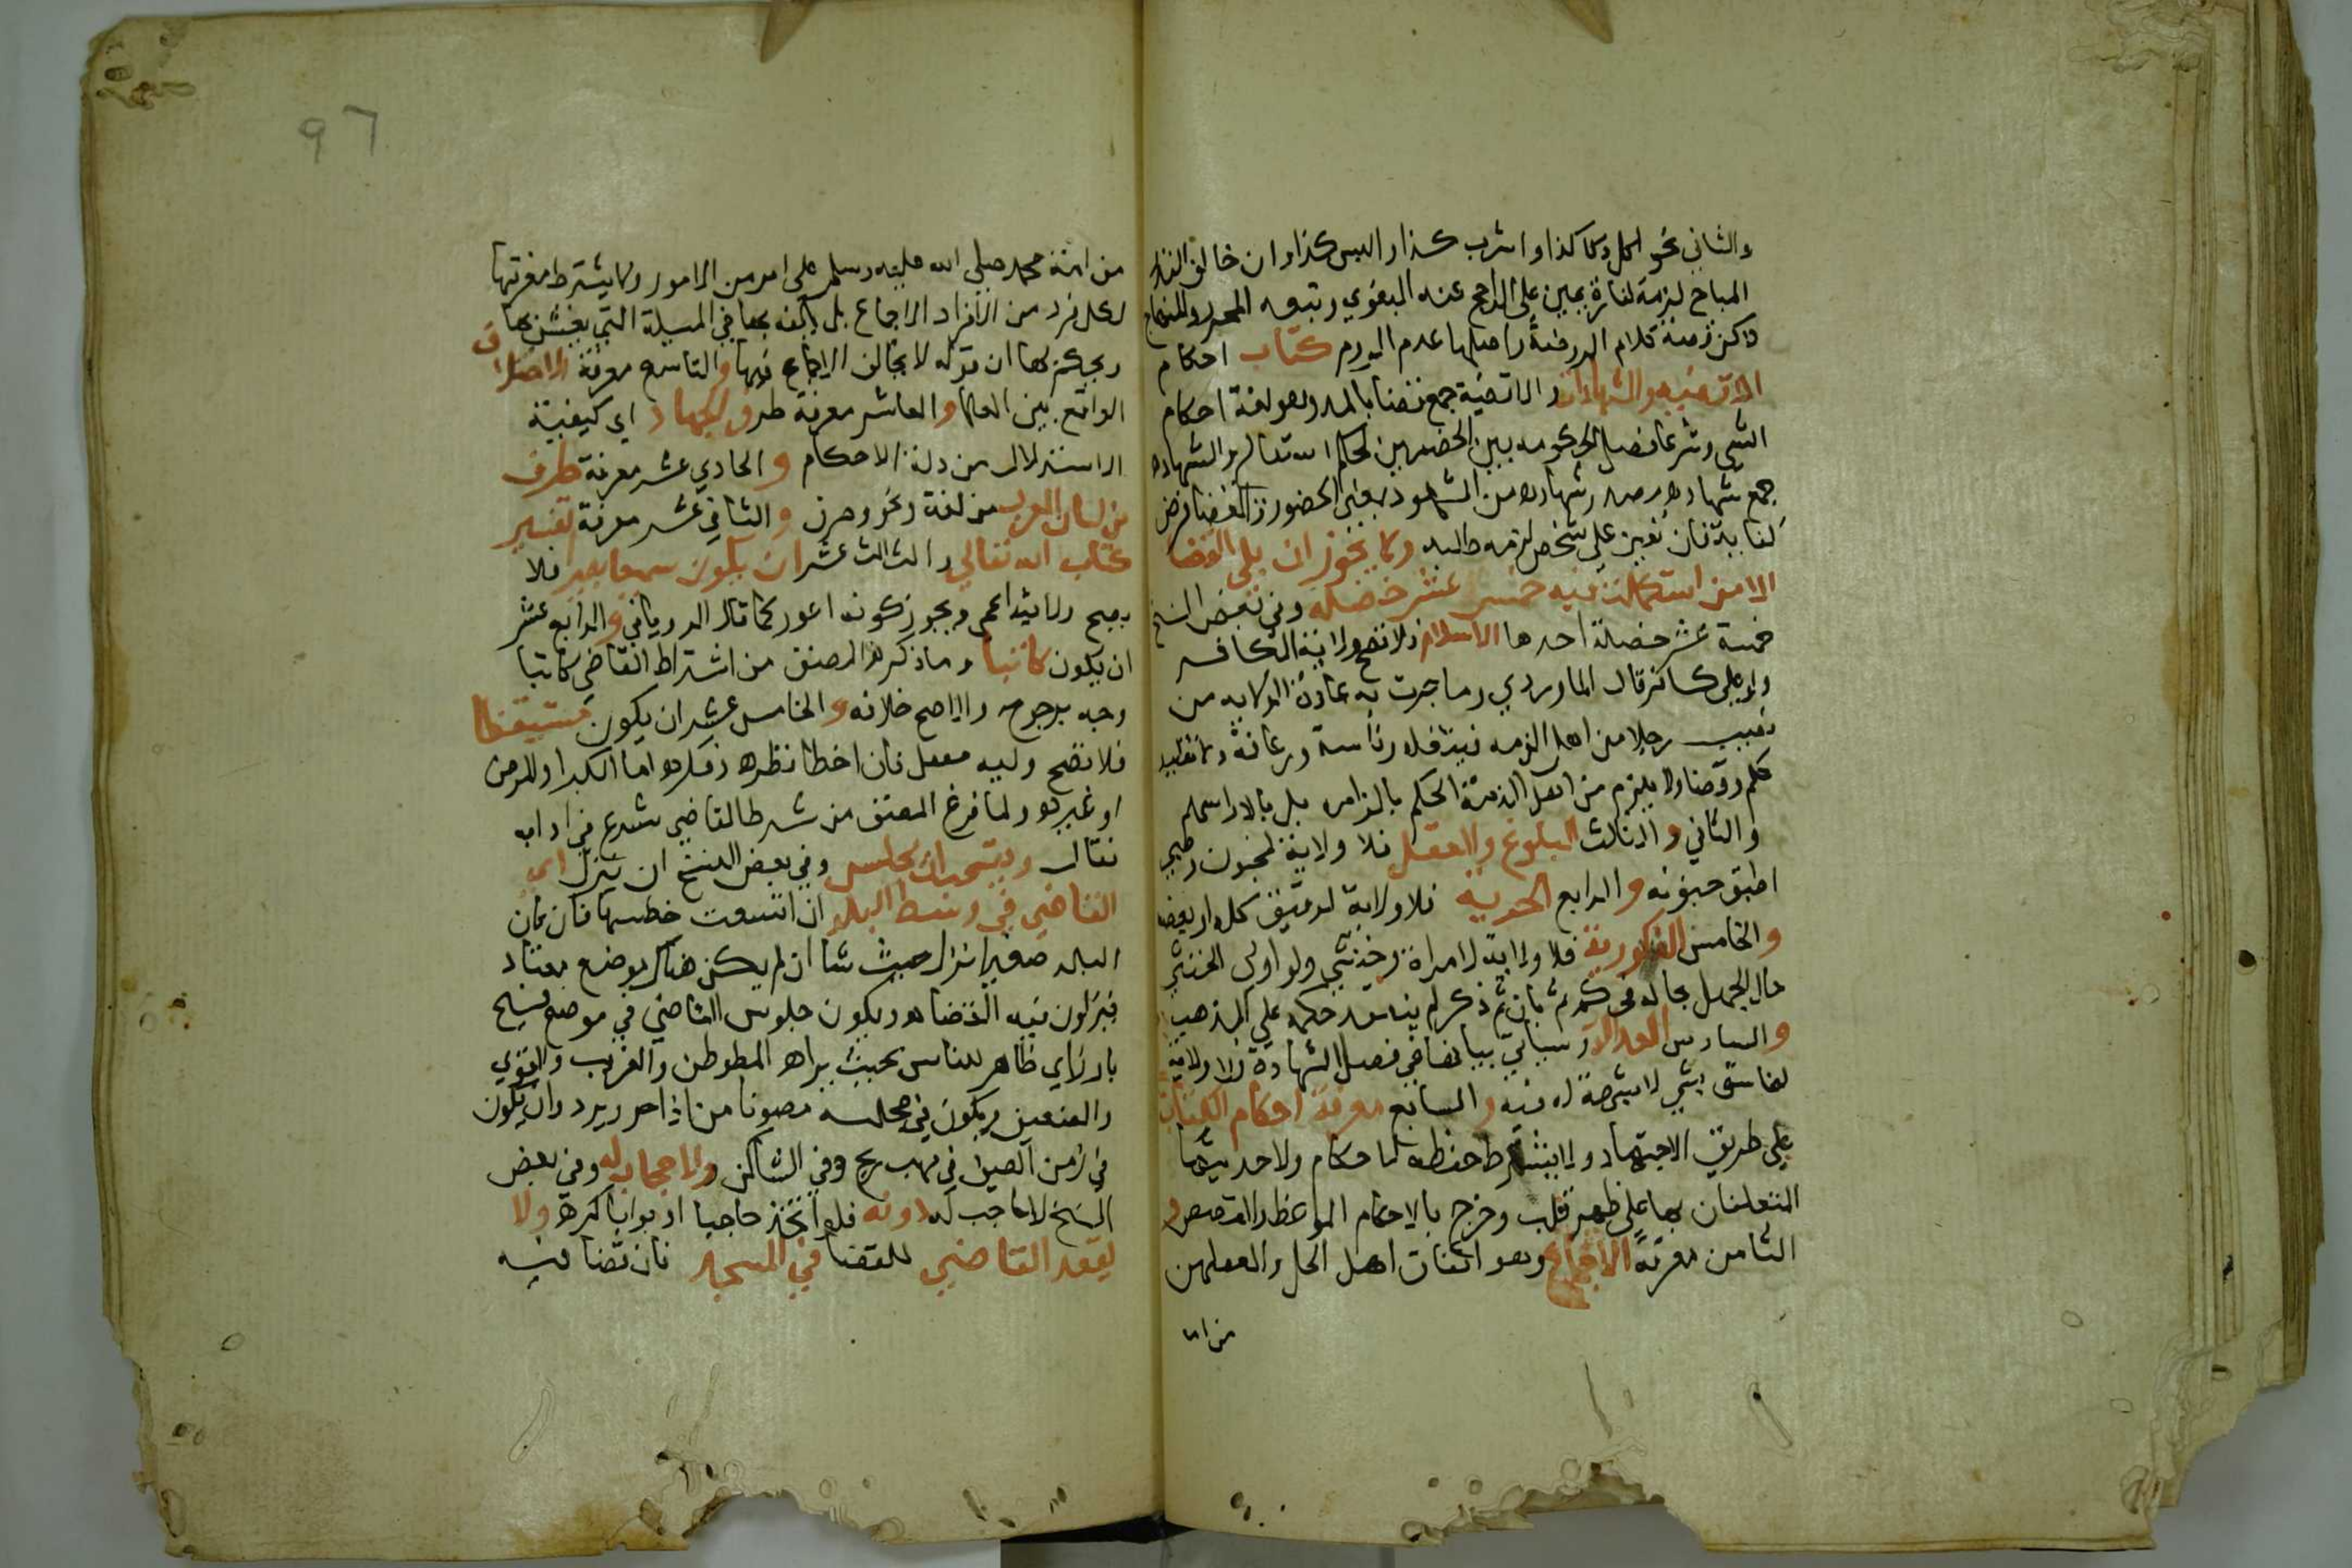 والثاني نحو لا اكل كذا او اشرب كذا والبس كذا وان خالف النذر
المباح لزمه كفارة يمين على الراجح عند البغوي وتبعه المحرر والمنهاج
لاكن قضية كلام الروضة واصلها عدم اللزوم كتاب احكام
الاقضيه والشهادات والاقضية جمع قضا بالمد وهو لغة احكام
الشي وشرعا فصل الحكومه بين الخصمين بحكم الله تعالى والشهاده
جمع شهاده مصدر شهادة من الشهود بمعنى الحضور والقضا فرض
كفاية فان تعين على شخص لزمه طلبه ولا يجوز ان يلي القضا
الا من استكملت فيه خمس عشر خصله وفي بعض النسخ
خمسة عشر خصلة احدها الاسلام فلا تصح ولاية الكافر
ولو على كافر قال الماوردي وما جرت به عادة الولايه من
نصب رجلا من اهل الذمه فتقليد رئاسة وزعامة لا تقليد
حكم وقضا ولا يلزم من اهل الذمة الحكم بالزامه بل بالتزامهم
والثاني والثالث البلوغ والعقل فلا ولاية لمجنون وصبي
اطبق جنونه والرابع الحرية فلا ولاية لرقيق كله او بعضه
والخامس الذكورية فلا ولاية لامراة وخنثى ولو ولى الخنثى
حال الجهل بحاله فحكم ثم بان ثم ذكر لم ينفذ حكمه على المذهب
والسادس العدالة وسياتي بيانها في فصل الشهادة فلا ولاية
لفاسق بشي لا شبهة له فيه والسابع معرفة احكام الكتاب
على طريق الاجتهاد ولا يشترط حفظه لاحكام ولا حديثها
المتعلقان بها على ظهر قلب وخرج بالاحكام المواعظ والقصص و
الثامن معرفة الاجماع وهو اتفاق اهل الحل والعقد من
من امة
97
من امة محمد صلى الله عليه وسلم على امر من الامور ولا يشترط معرفتها
لكل فرد من افراد الاجماع بل يكفيه بها في المسيلة التي يفتي بها
ويحكم بها ان قوله لا يخالف الاجماع فيها والتاسع معرفة الاختلاف
الواقع بين العلما والعاشر معرفة طرق الاجتهاد اي كيفية
الاستدلال من ادلة الاحكام والحادي عشر معرفة طرف
من لسان العرب من لغة ونحو وصرف والثاني عشر معرفة تفسير
كتاب الله تعالى والثالث عشر ان يكون سميعا بصير فلا
يصح ولاية اعمى ويجوز كونه اعور كما قال الروياني والرابع عشر
ان يكون كاتبا وما ذكره المصنف من اشتراط القاضي كاتبا
وجه مرجوح والاصح خلافه والخامس عشر ان يكون مستيقظا
فلا تصح وليه مغفل فان اخطا نظره وفكره اما الكبر او لمرض
او غيره ولما فرغ المصنف من شرط القاضي شرع في اداب
فقال ويستحب ان يجلس وفي بعض النسخ ان ينزل اي
القاضي في وسط البلد ان اتسعت خطتها فان كان
البلد صغيرا نزل حيث شا ان لم يكن هناك موضع معتاد
فينزلون فيه القضاه ويكون جلوس القاضي في موضع فسيح
بارز اي ظاهر للناس بحيث يراه المطوطن والغريب والقوي
والضعيف ويكون في مجلسه مصونا من اذا حر وبرد وان يكون
في زمن الصيف في مهب ريح وفي الشتا كن ولا حجاب له وفي بعض
النسخ لا حاجب له دونه فلو اتخذ حاجبا او بوابا كره ولا
يقعد القاضي للقضا في المسجد فان قضا فيه